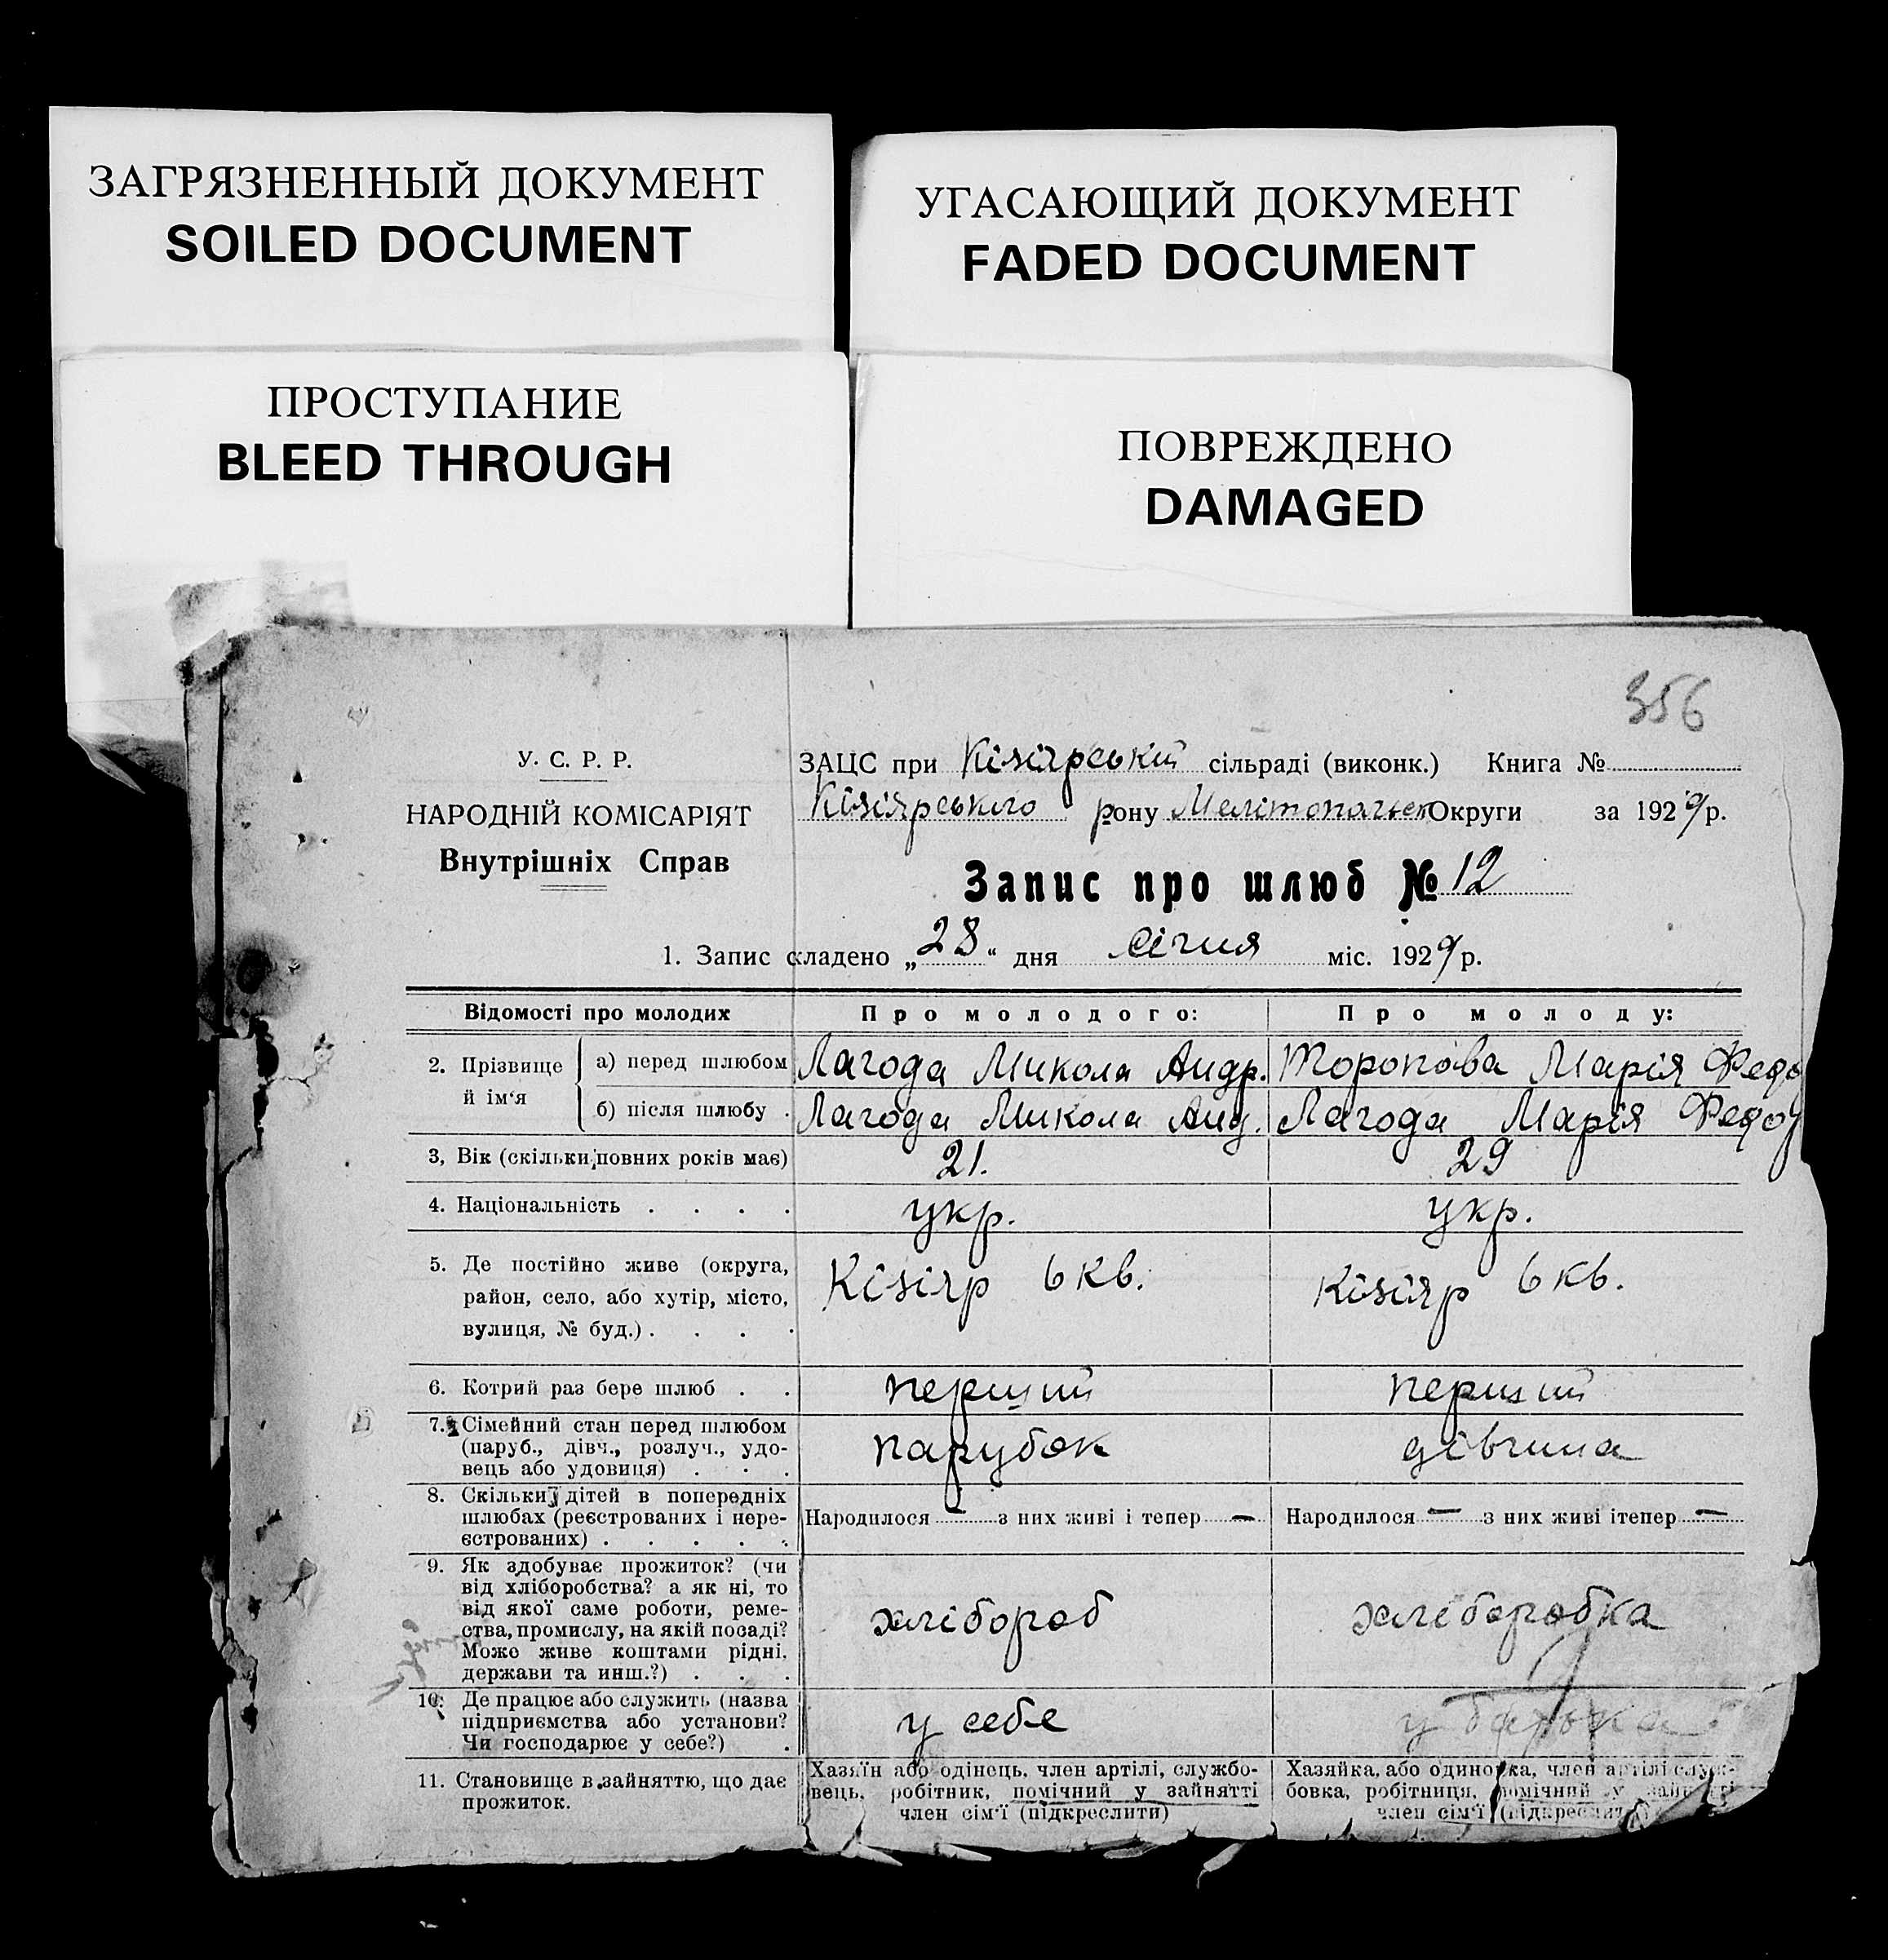 ЗАГРЯЗНЕННЫЙ ДОКУМЕНТ
SOILED DOCUMENT
УГАСАЮЩИЙ ДОКУМЕНТ
FADED DOCUMENT
ПРОСТУПАНИЕ
BLEED THROUGH
ПОВРЕЖДЕНО
DAMAGED
356
У. С. Р. Р.
НАРОДНІЙ КОМІСАРІЯТ
Внутрішніх Справ
ЗАЦС при Кізіярській сільраді (виконк.) Книга №
Кізіярського рону Мелітопольськ Округи за 1929 р.
Запис про шлюб № 12
1. Запис складено „28“ дня січня міс. 1929 р.
Відомості про молодих Про молодого: Про молоду:
2. Прізвище й ім'я
а) перед шлюбом Лагода Микола Андр. Торопова Марія Федо
б) після шлюбу . Лагода Микола Анд. Лагода Марія Федо
3, Вік (скільки повних років має) 21. 29
4. Національність . . . . укр. укр.
5. Де постійно живе (округа,
район, село, або хутір, місто,
вулиця, № буд.) . . . .
Кізіяр 6 кв. Кізіяр 6 кв.
6. Котрий раз бере шлюб . . перший перший
7. Сімейний стан перед шлюбом
(паруб., дівч., розлуч., удо-
вець або удовиця) . . .
парубок дівчина
8. Скільки дітей в попередніх
шлюбах (реєстрованих і нере-
єстрованих) . . . . .
Народилося — з них живі і тепер — Народилося — з них живі ітепер —
9. Як здобуває прожиток? (чи
від хліборобства? а як ні, то
від якої саме роботи, реме-
ства, промислу, на якій посаді?
Може живе коштами рідні,
держави та инш.?) . . .
хлібороб хліборобка
10. Де працює або служить (назва
підприємства або установи?
Чи господарює у себе?) .
у себе у батька
11. Становище в зайняттю, що дає
прожиток.
Хазяїн або одінець, член артілі, службо-
вець, робітник, помічний у зайнятті
член сім'ї (підкреслити)
Хазяйка, або одиночка, член артілі служ-
бовка, робітниця, помічний у зайнятті
член сім'ї (підкреслит